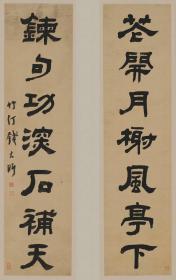 花開月榭風亭下
鍊句功深石補天
竹汀錢大昕